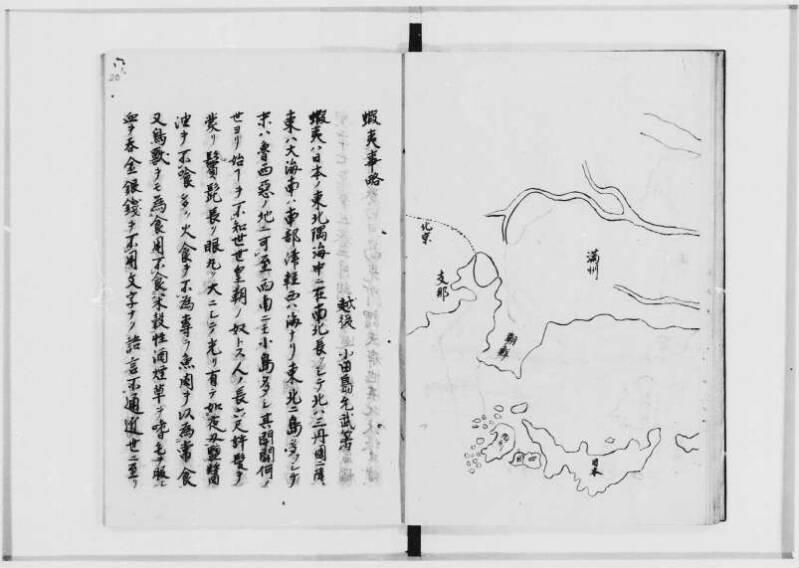 蝦夷事略
越後 小田島允武著
蝦夷ハ日本ノ東北隅海中ニ在南北長クシテ北ハ三丹國ニ隣
東ハ大海南ハ南部津軽西ハ海ナリ東北ニ島多クシテ
末ハ魯西亜ノ地ニ可至西南ニモ小島多クシ其開闢何ノ
世ヨリ始ーヲ不知世世皇朝ノ奴トス人ノ長六尺許髪ヲ
被リ鬚髭長ク眼丸ク大ニシテ光リ有テ如夜叉
油ヲ不喰多ク火食ヲ不為専ラ魚肉ヲ以為常食
又鳥獣ヲモ為食用不食米穀性酒煙草ヲ嗜毛ヲ服シ
血ヲ呑金銀銭ヲ不用文字ナク語言不通近世ニ至リ
北京
支那
満州
朝鮮
四国
日本